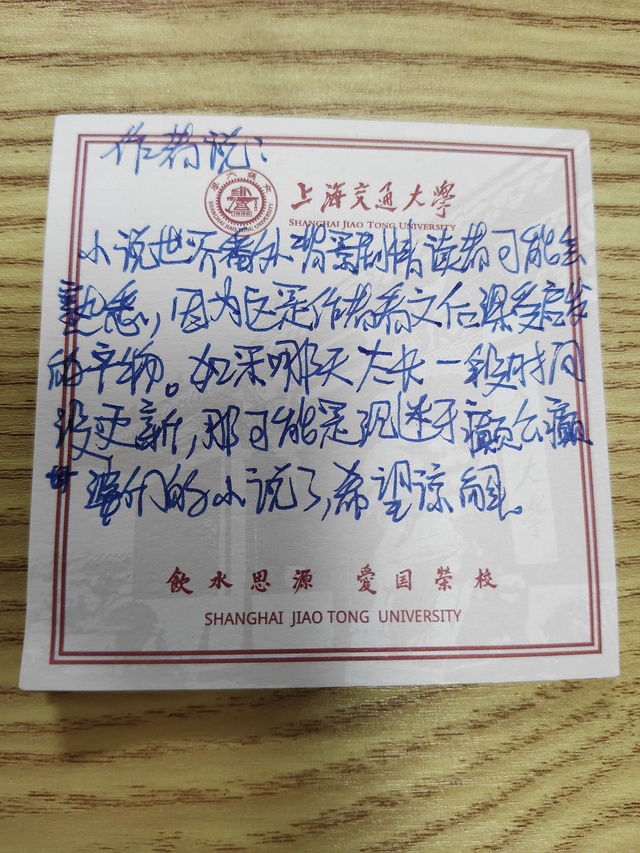 作者说:
上海交通大學
SHANGHAI JIAO TONG UNIVERSITY
小说世界番外背景剧情读者可能会
熟悉,因为这是作者看文课受启发
的产物。如果哪天太长一段时间
没更新,那可能是迷于癫公癫
婆们的小说了,希望谅。
飲水思源 愛国榮校
SHANGHAI JIAO TONG UNIVERSITY